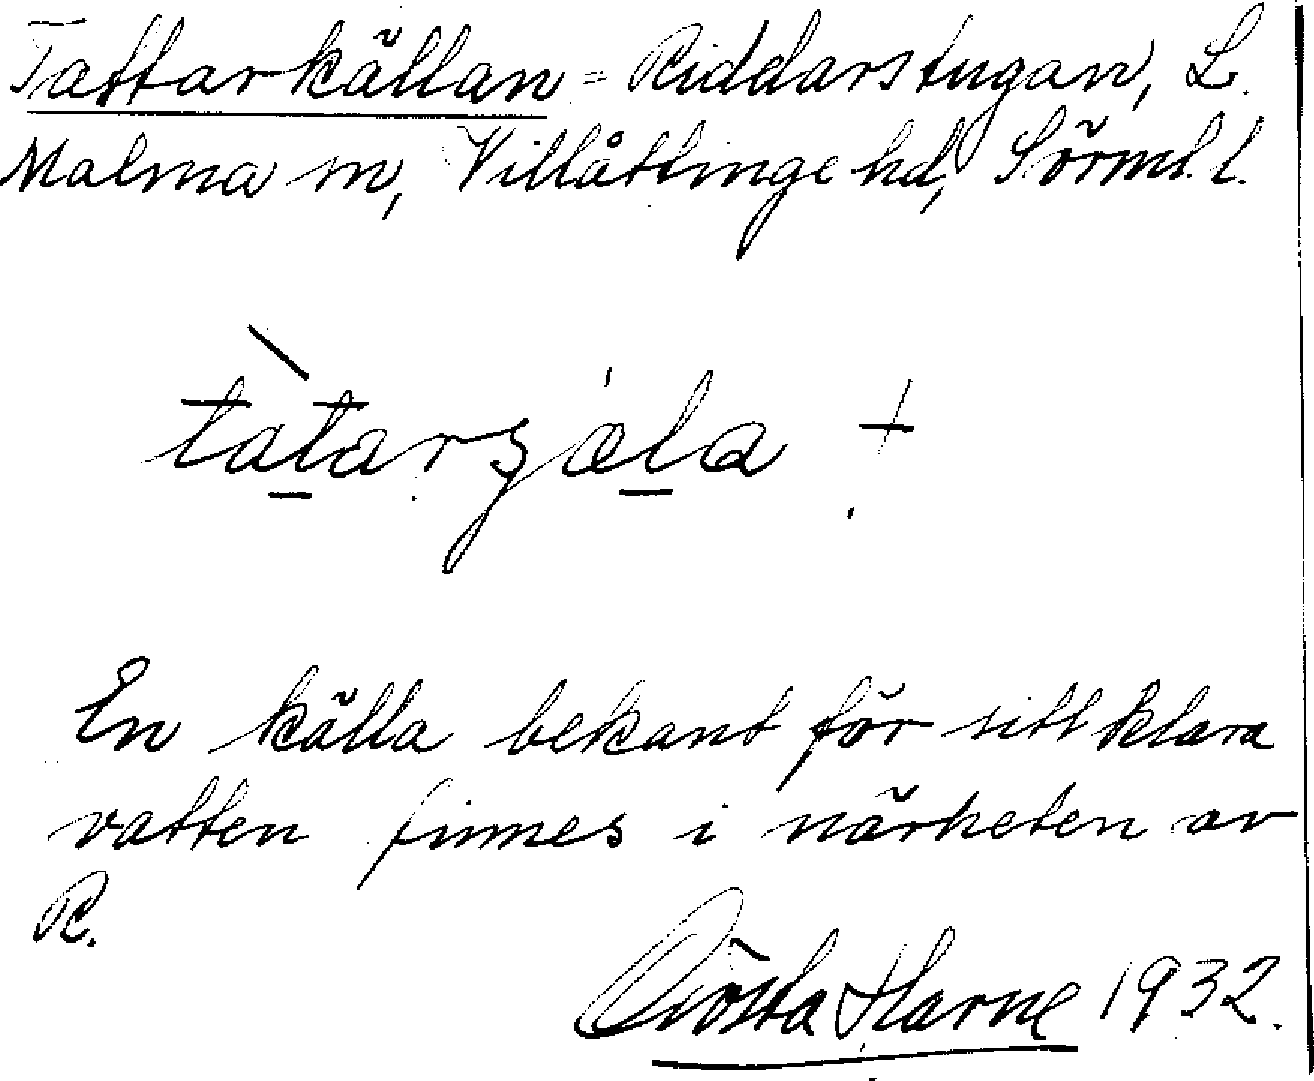 Tattarkällan = Riddarstugan, L.
Malma sn, Villåttinge hd, Sörml. l.
tàtarʂjäla +
En källa bekant för sitt klara
vatten finnes i närheten av
R.
Gösta Harne 1932.